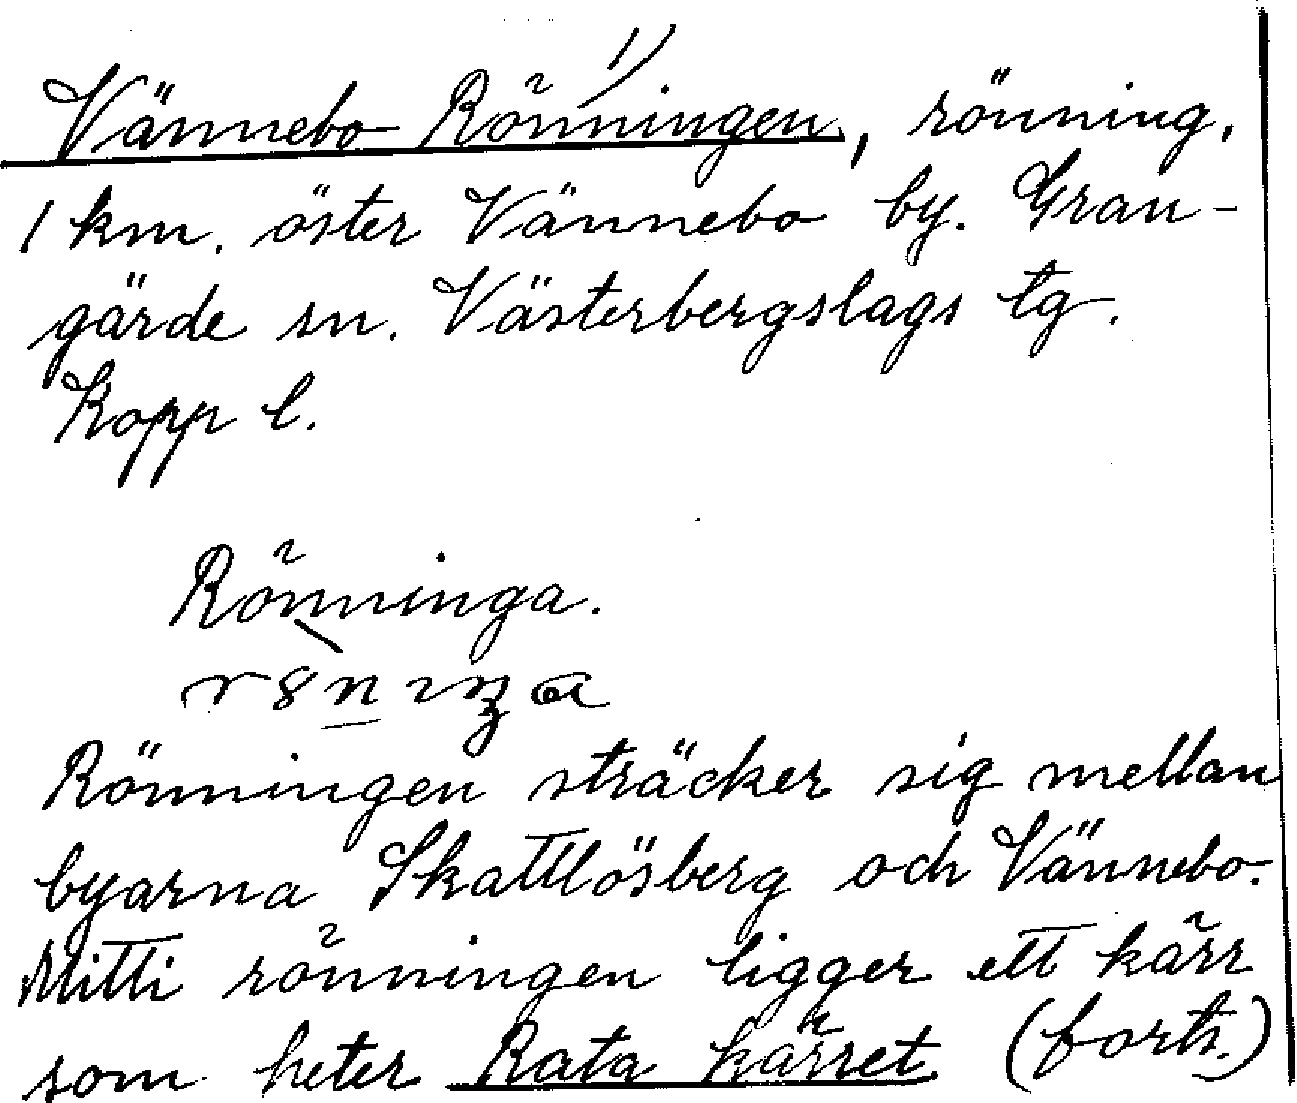 Vännebo Rönningen 1), rönning,
1 km. öster Vännebo by. Gran-
gärde sn. Västerbergslags tg.
Kopp l.
Rönninga.
Rönningen sträcker sig mellan
byarna Skattlösberg och Vännebo.
Mitti rönningen ligger ett kärr
som heter Rata kärret (forts.)